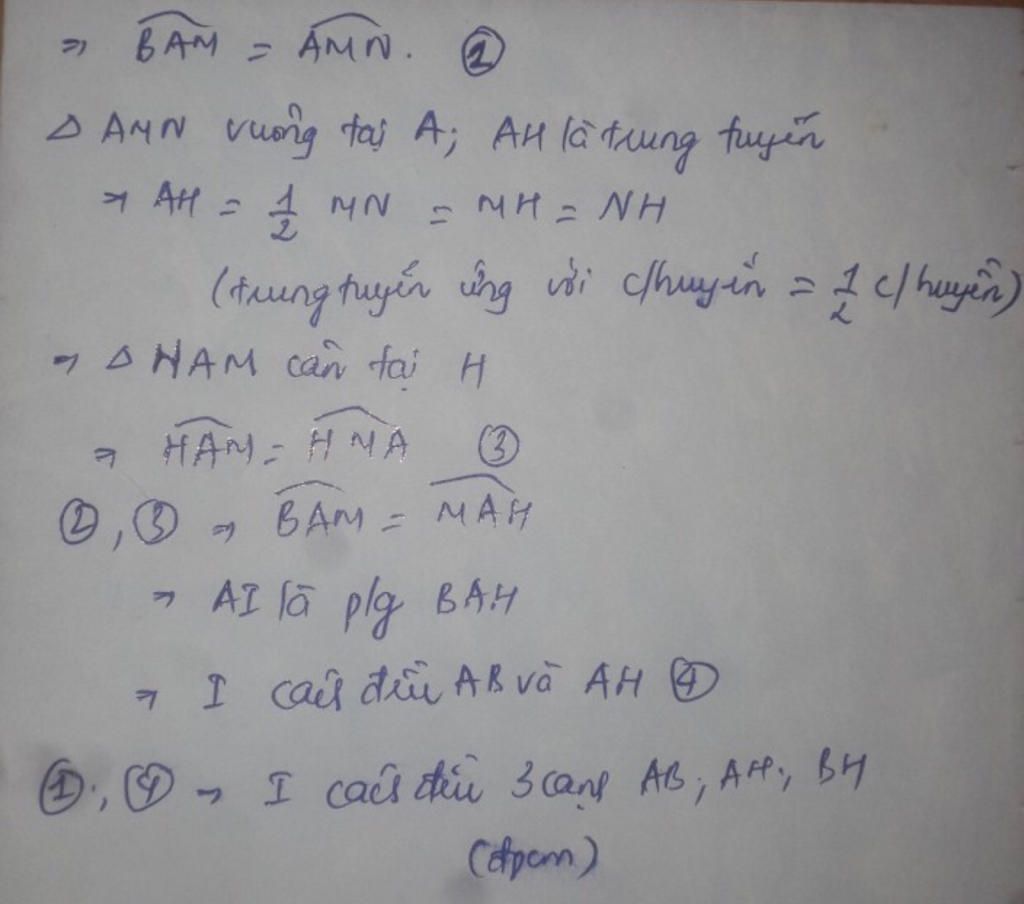 ⇒ \widehat{BAM} = \widehat{AMN}. ②
Δ AMN vuông tại A; AH là trung tuyến
⇒ AH = \frac{1}{2} MN = MH = NH
(trung tuyến ứng với c/huyền = \frac{1}{2} c/huyền)
⇒ Δ HAM cân tại H
⇒ \widehat{HAM} = \widehat{HMA} ③
②, ③ ⇒ \widehat{BAM} = \widehat{MAH}
⇒ AI là p/g BAH
⇒ I cách đều AB và AH ④
①, ④ → I cách đều 3 cạnh AB; AH; BH
(đpcm)